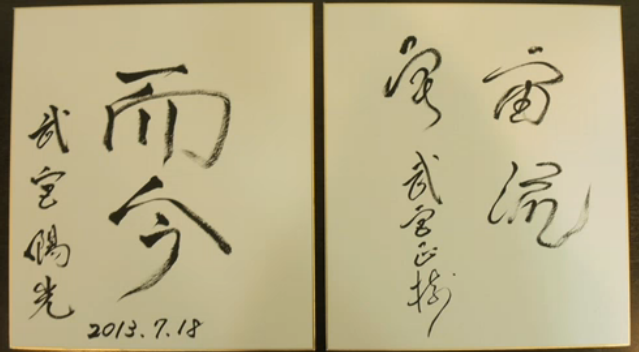 而今
武宮陽光
2013.7.18
宙流
武宮正樹